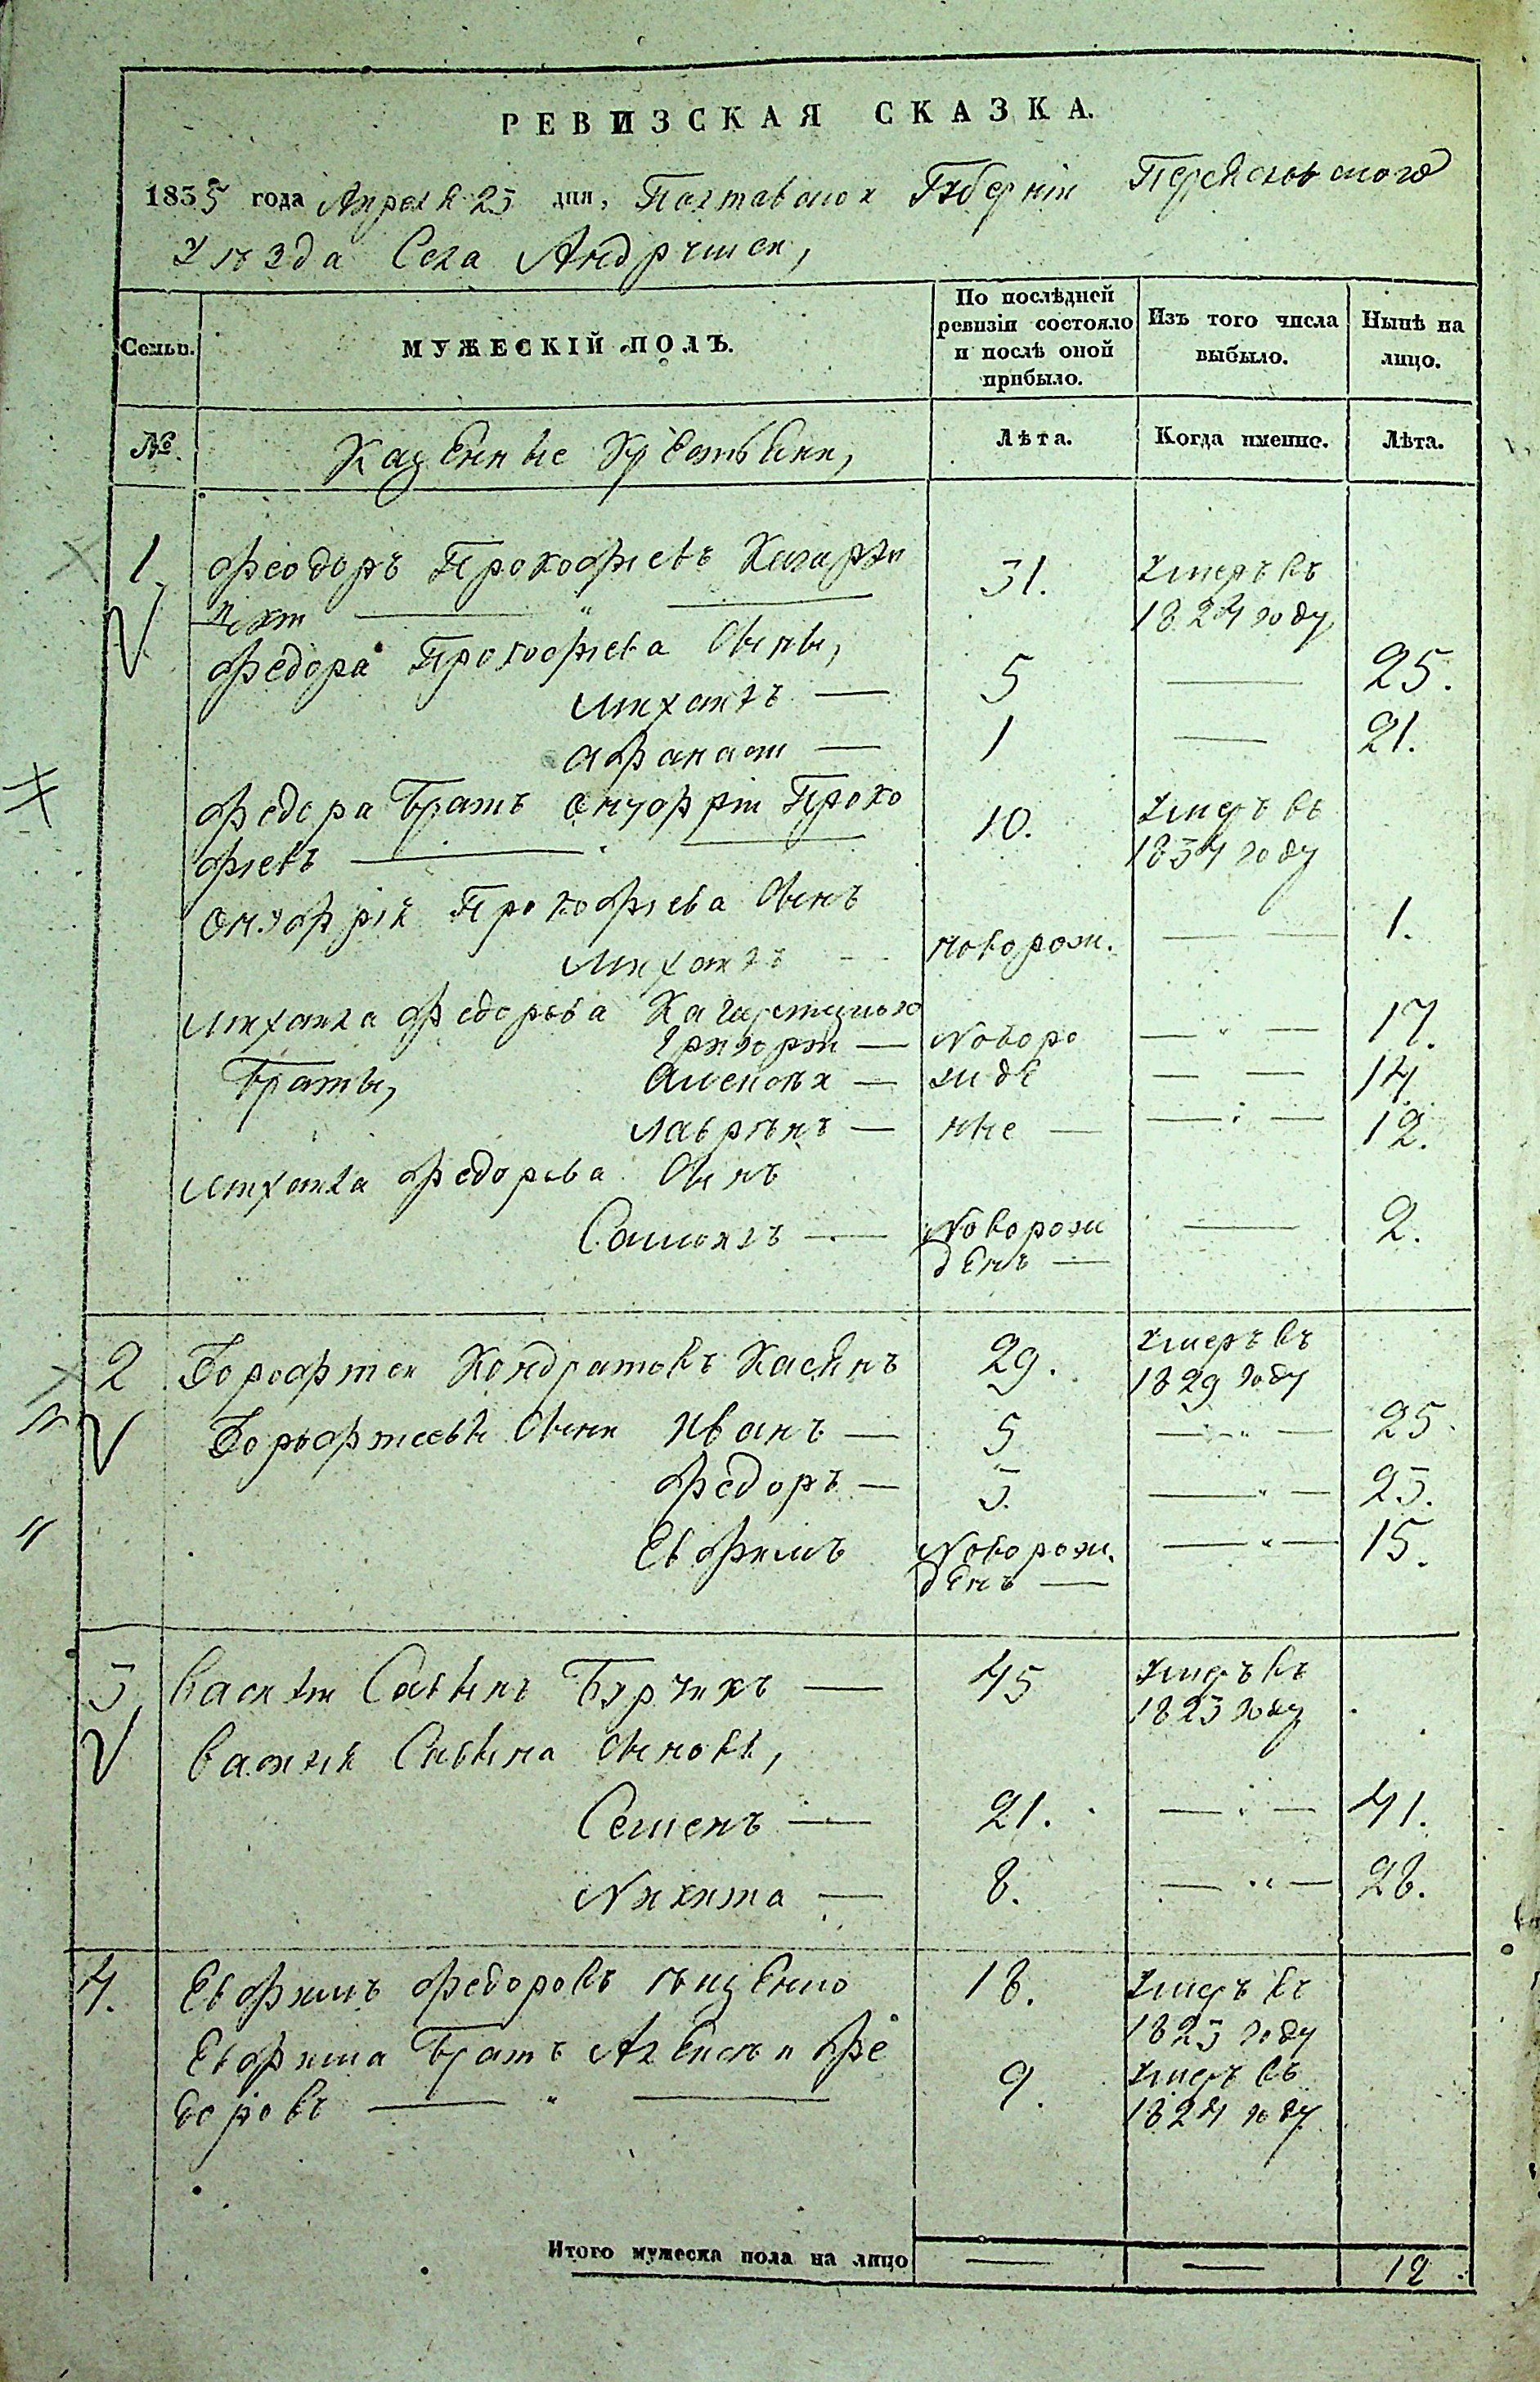 РЕВИЗСКАЯ СКАЗКА.
1835 года Апреля 23 дня, Полтавской Губернiи Переяславского
Уѣзда Села Андруши,
Семьи. МУЖЕСКIЙ ПОЛЪ. По послѣдней ревизiи состояло и послѣ оной прибыло. Изъ того числа выбыло. Нынѣ на лицо.
№. Казенные Крестьяни, Лѣта. Когда именно. Лѣта.
1. Феодоръ Прокофiевъ 31. Умеръ въ
1824 году
Федора Прокофiева Сыны,
Михаилъ — 5 — 25.
Афанасiй — 1 — 21.
Федора Братъ Онуфрiй Проко 10. Умеръ въ
фiевъ — 1834 году
Онуфрiя Прокофiева Сынъ
Михаилъ — новорож. — 1.
Михаила Федорова
Григорiй — Новоро — 17.
Браты, Алексѣй — жде — 14.
Лаврѣнъ — ные — — 12.
Михаила Федорова Сынъ
Самоилъ — Новорож — 2.
денъ —
2 Дорофiей Кондратовъ Касянъ 29. Умеръ въ
1829 году
Дорофiевы Сыни Иванъ — 5 — 25
Федоръ — 3. — 23.
Евфимъ Новорож. — 15.
денъ —
3 Василiй Саввинъ Бурчикъ — 45 Умеръ въ
1823 году
Василiя Саввина Сыновя,
Семенъ — 21. — 41.
Никита — 8. — 28.
4. Евфимъ Федоровъ 18. Умеръ въ
1823 году
Евфима Братъ Алексѣй Фе 9. Умеръ въ
доровъ — 1824 году
Итого мужеска пола на лицо — — 12